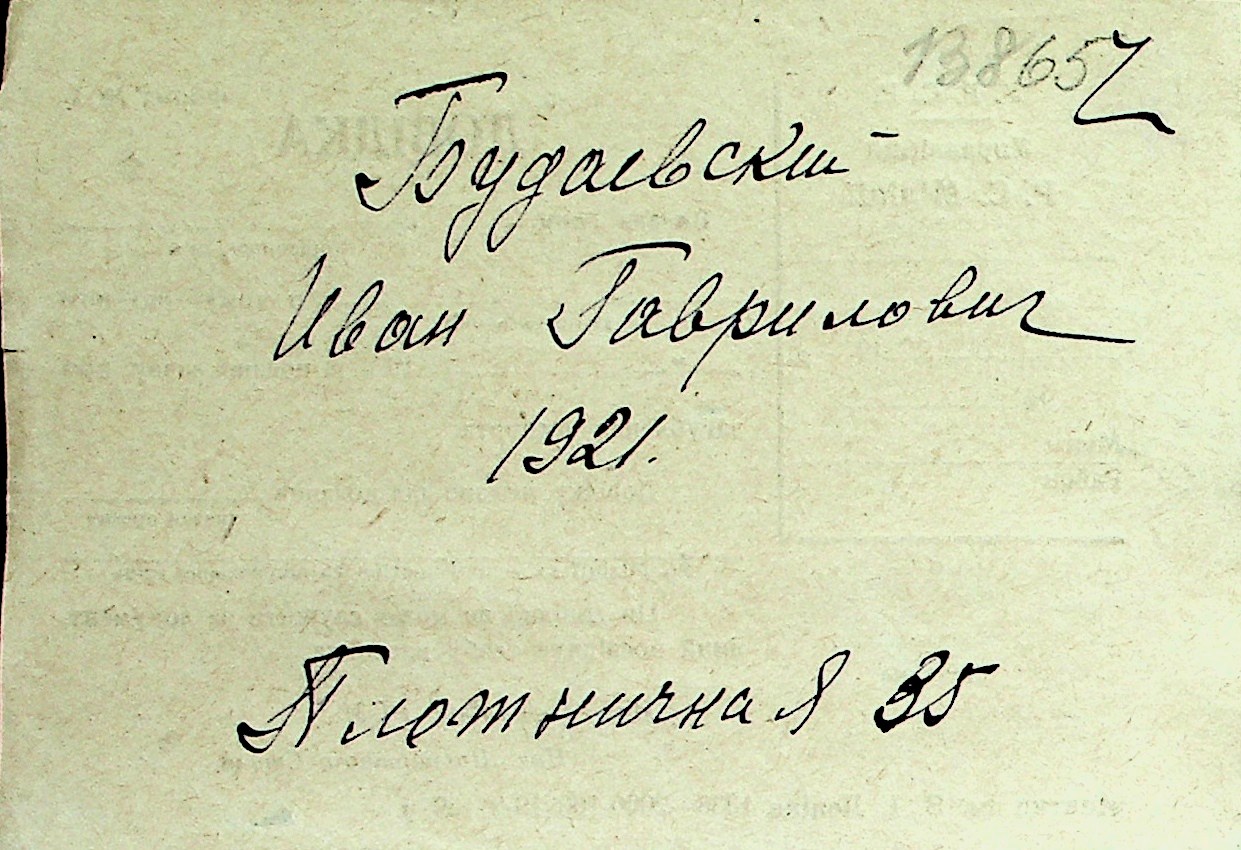 138657
Будаевский
Иван Гаврилович
1921.
Плотничная 35